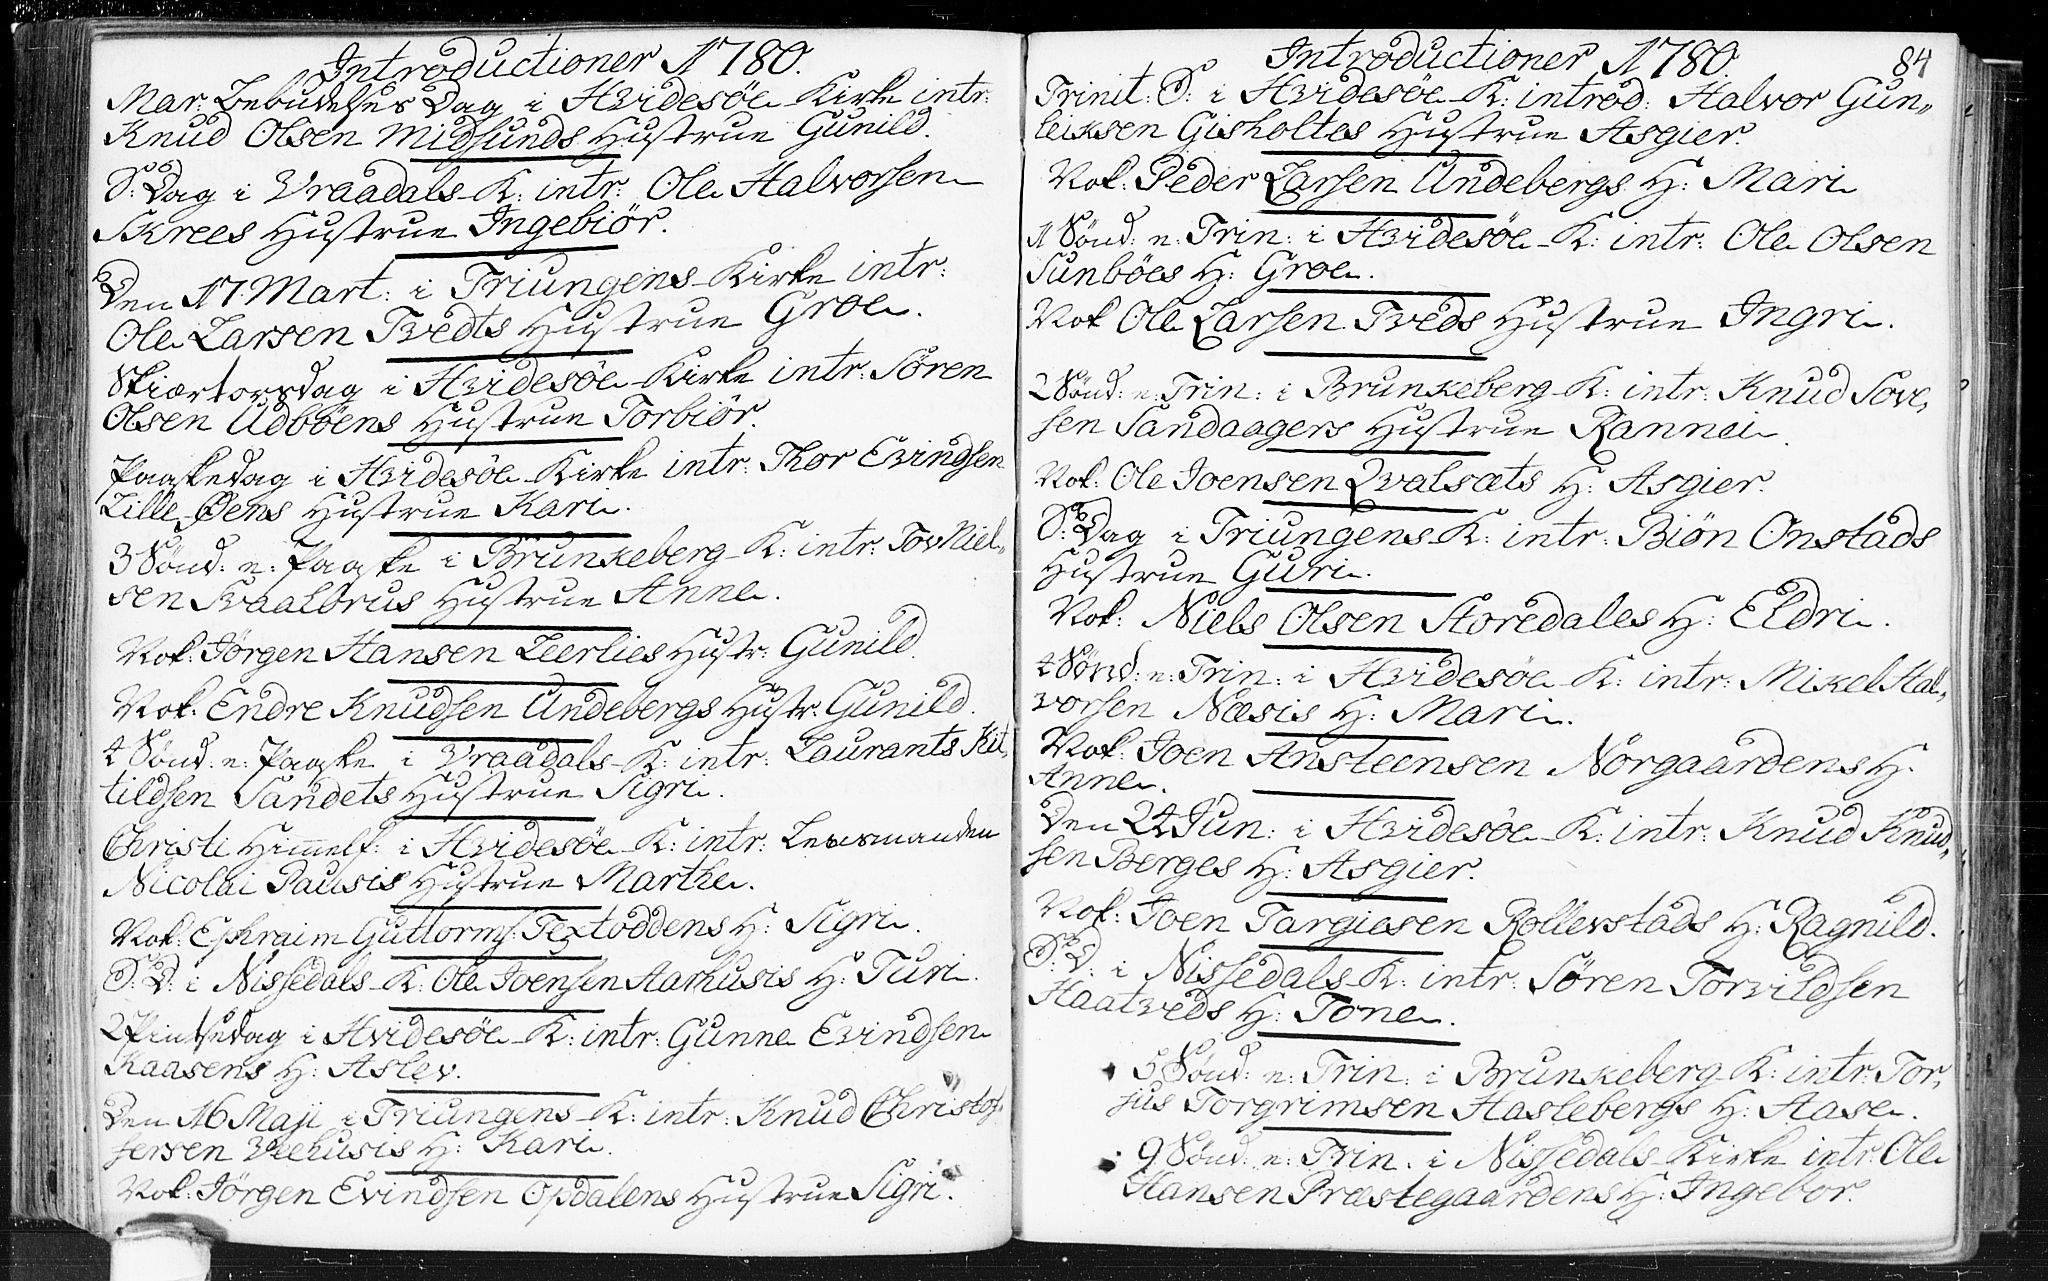 Introductioner 1780.
Mar: Bebudelses Dag i Hvidesöe Kirke intr:
Knud Olsen Midsunds Hustrue Gunild.
S: D: Dag i Vraadals K: intr: Ole Halvorsen
Skrees Hustrue Ingebiör.
Den 17 Mart: i Triungens Kirke intr:
Ole Larsen Tvedts Hustrue Groe.
Skiærtorsdag i Hvidesöe Kirke intr: Sören
Olsen Udböens Hustrue Torbiör.
Paaskedag i Hvidesöe Kirke intr: Thor Evindsen
Lille Øens Hustrue Kari.
3 Sönd: e: Paaske i Brunkeberg K: intr: Tov Niel„
sen Svaalbrus Hustrue Anne.
Not: Jørgen Hansen Leerlies Hustr: Gunild.
Not: Endre Knudsen Undebergs Hustr: Gunild.
4 Sönd: e: Paaske i Vraadals K: intr: Laurants Kit„
tildsen Sandets Hustrue Sigri.
Christi Himmelf: i Hvidesöe K: intr: Lensmanden
Nicolai Pausis Hustrue Marthe.
Not: Ephraim Guttorms: Textoddens H: Sigri.
S: D: i Nissedals K: Ole Joensen Aarhusis H: Turi.
2 Pintsedag i Hvidesöe K: intr: Gunne Evindsen
Kaasens H: Aslev.
Den 16 Maji i Triungens K: intr: Knud Christof„
fersen Veehusis H: Kari.
Not: Jørgen Evindsen Opdalens Hustrue Sigri.
Introductioner 1780. 84
Trinit: S: i Hvidesöe K: introd: Halvor Gun„
leiksen Gisholtes Hustrue Asgier.
Not: Peder Larsen Undebergs H: Mari
1 Sönd: e: Trin: i Hvidesöe K: intr: Ole Olsen
Sunböes H: Groe.
Not Ole Larsen Tveds Hustrue Ingri.
2 Sönd: e: Trin: i Brunkeberg K: intr: Knud Tove„
sen Sandaagers Hustrue Rannei.
Not: Ole Joensen Qvalsæts H: Asgier.
S: D: Dag i Triungens K: intr: Biøn Onstads
Hustrue Guri.
Not: Niels Olsen Storedales H: Eldri.
4 Sönd: e: Trin: i Hvidesöe K: intr: Mikel Hal„
vorsen Næsis H: Mari.
Not: Joen Ansteensen Norgaardens H.
Anne.
Den 24 Jun: i Hvidesöe K: intr: Knud Knud„
sen Berges H: Asgier.
Not: Joen Targiesen Rollevstads H: Ragnild.
S: D: i Nissedals K: intr: Sören Torvildsen
Haatveds H: Tone.
5 Sönd: e: Trin: i Brunkeberg K: intr: Tor„
jus Torgrimsen Haslebergs H: Aase.
9 Sönd: e: Trin: i Nissedals Kirke intr: Ole
Hansen Præstegaardens H: Ingebor.